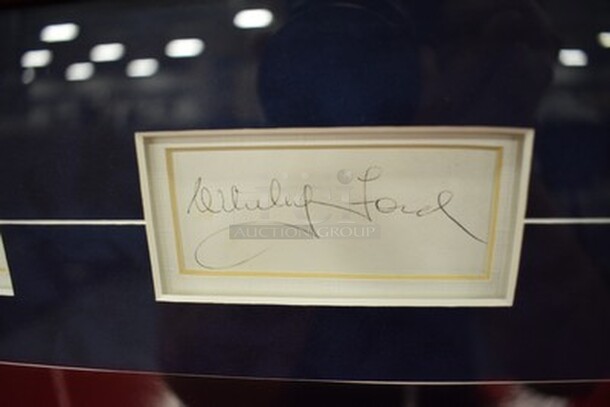 Whitey Ford
AUCTION GROUP